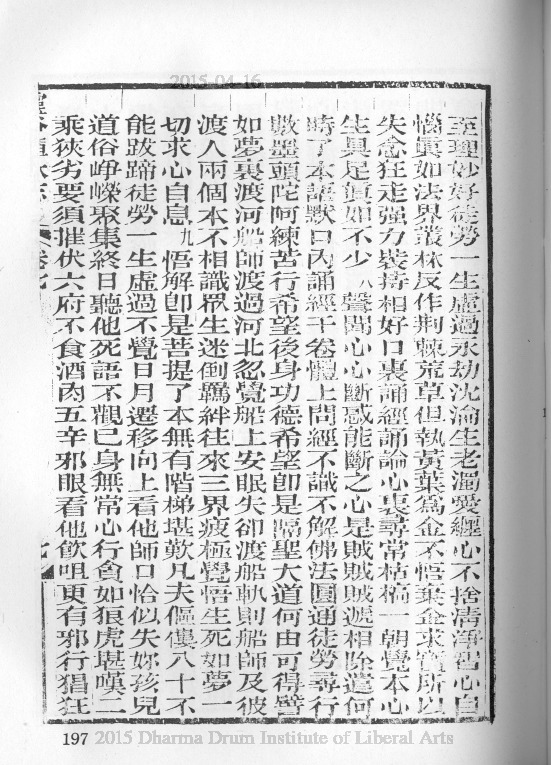 2015-04-16
至理妙好徒勞一生虛過永劫沈淪生老濁愛纏心不捨清淨智心自
惱真如法界叢林反作荆棘荒草但執黃葉為金不悟棄金求寶所以
失念狂走强力裝持相好口裏誦經誦論心裏尋常枯槁一朝覺本心
生具足真如不少 八 聲聞心心斷惑能斷之心是賊賊賊遞相除遣何
時了本語默口內誦經千卷體上問經不識不解佛法圓通徒勞尋行
數墨頭陀阿練苦行希望後身功德希望即是隔聖大道何由可得譬
如夢裏渡河船師渡過河北忽覺船上安眠失卻渡船軌則船師及彼
渡人兩個本不相識眾生迷倒羈絆往來三界疲極覺悟生死如夢一
切求心自息 九 悟解即是菩提了本無有階梯堪歎凡夫傴僂八十不
能跋蹄徒勞一生虛過不覺日月遷移向上看他師口恰似失嬭孩兒
道俗崢嶸聚集終日聽他死語不觀己身無常心行貪如狼虎堪嘆二
乘狹劣要須摧伏六府不食酒肉五辛邪眼看他飲咀更有邪行猖狂
卷七 七
197 2015 Dharma Drum Institute of Liberal Arts